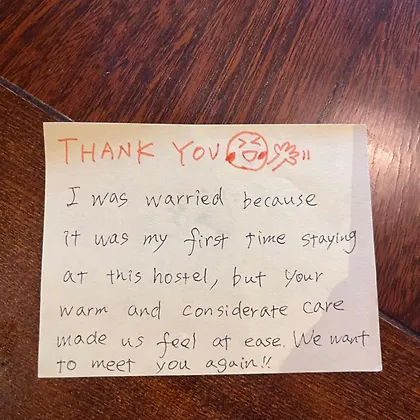 THANK YOU
I was warried because
it was my first time staying
at this hostel, but your
warm and considerate care
made us feel at ease. We want
to meet you again!!